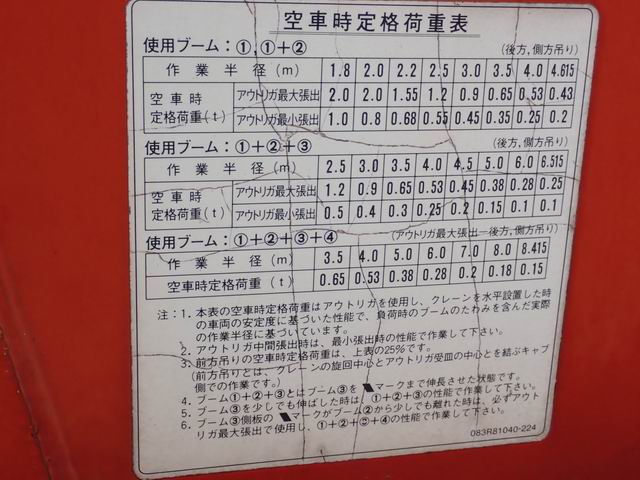 空車時定格荷重表
使用ブーム：①,①＋② (後方,側方吊り)
作業半径(m) 1.8 2.0 2.2 2.5 3.0 3.5 4.0 4.615
空車時定格荷重(t) アウトリガ最大張出 2.0 2.0 1.55 1.2 0.9 0.65 0.53 0.43
アウトリガ最小張出 1.0 0.8 0.68 0.55 0.45 0.35 0.25 0.2
使用ブーム：①＋②＋③ (後方,側方吊り)
作業半径(m) 2.5 3.0 3.5 4.0 4.5 5.0 6.0 6.515
空車時定格荷重(t) アウトリガ最大張出 1.2 0.9 0.65 0.53 0.45 0.38 0.28 0.25
アウトリガ最小張出 0.5 0.4 0.3 0.25 0.2 0.15 0.1 0.1
使用ブーム：①＋②＋③＋④ (アウトリガ最大張出－後方,側方吊り)
作業半径(m) 3.5 4.0 5.0 6.0 7.0 8.0 8.415
空車時定格荷重(t) 0.65 0.53 0.38 0.28 0.2 0.18 0.15
注：1. 本表の空車時定格荷重はアウトリガを使用し、クレーンを水平設置した時
の車両の安定度に基づいた性能で、負荷時のブームのたわみを含んだ実際
の作業半径に基づいています。
2. アウトリガ中間張出時は、最小張出時の性能で作業して下さい。
3. 前方吊りの空車時定格荷重は、上表の25%です。
(前方吊りとは、クレーンの旋回中心とアウトリガ受皿の中心とを結ぶキャブ
側での作業です。)
4. ブーム①＋②＋③とはブーム③を マークまで伸長させた状態です。
5. ブーム③を少しでも伸ばした時は、①＋②＋③の性能で作業して下さい。
6. ブーム③側板の マークがブーム②から少しでも離れた時は、必ずアウト
リガ最大張出で使用し、①＋②＋③＋④の性能で作業して下さい。
083R81040-224